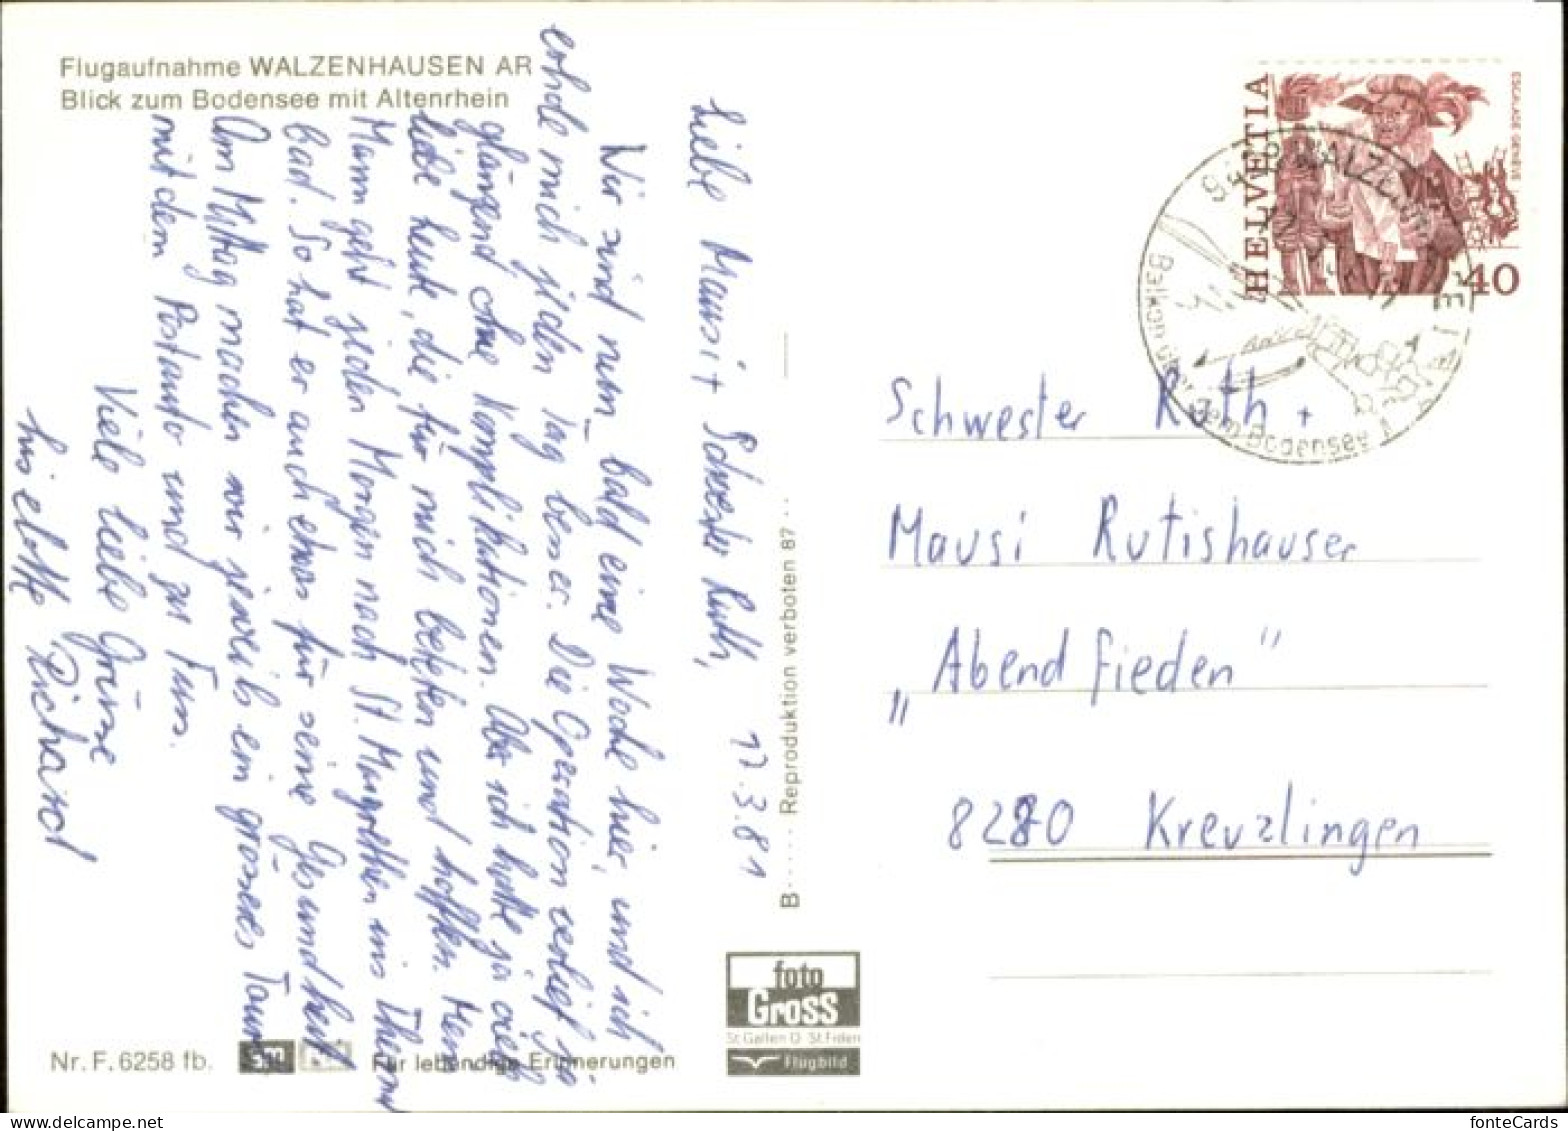 Flugaufnahme WALZENHAUSEN AR
Blick zum Bodensee mit Altenrhein
Liebe Mausi + Schwester Ruth, 17.3.81
Wir sind nun bald eine Woche hier, und ich
erhole mich jeden Tag besser. Die Operation verlief ja
glänzend ohne Komplikationen. Aber ich hatte ja viele
liebe Leute, die für mich beteten und hofften. Mein
Mann geht jeden Morgen nach St. Margrethen ins Thermal
bad. So hat er auch etwas für seine Gesundheit
Am Mittag machen wir jeweils ein grösseres Tour
mit dem Postauto und zu Fuss.
Viele liebe Grüsse
Lieselotte Richard
B····· Reproduktion verboten 87··
HELVETIA
ESCALADE GENÈVE
40
WALZENHAUSEN
Balkon über dem Bodensee
Schwester Ruth +
Mausi Rutishauser
„Abendfieden"
8280 Kreuzlingen
foto
Gross
St.Gallen O St.Fiden
Flugbild
Nr. F. 6258 fb.
Für lebendige Erinnerungen
fonteCards